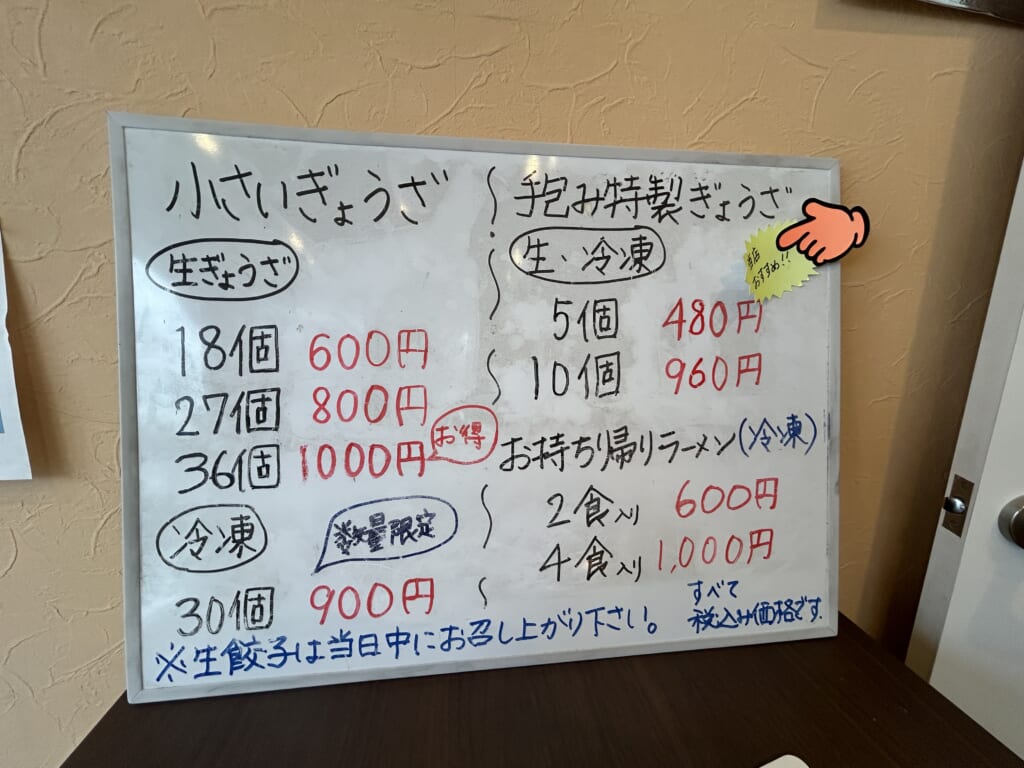 小さいぎょうざ
生ぎょうざ
18個 600円
27個 800円
36個 1000円 お得
冷凍 数量限定
30個 900円
手包み特製ぎょうざ
生・冷凍
当店
おすすめ!!
5個 480円
10個 960円
お持ち帰りラーメン(冷凍)
2食入り 600円
4食入り 1,000円
すべて
税込み価格です.
※生餃子は当日中にお召し上がり下さい。